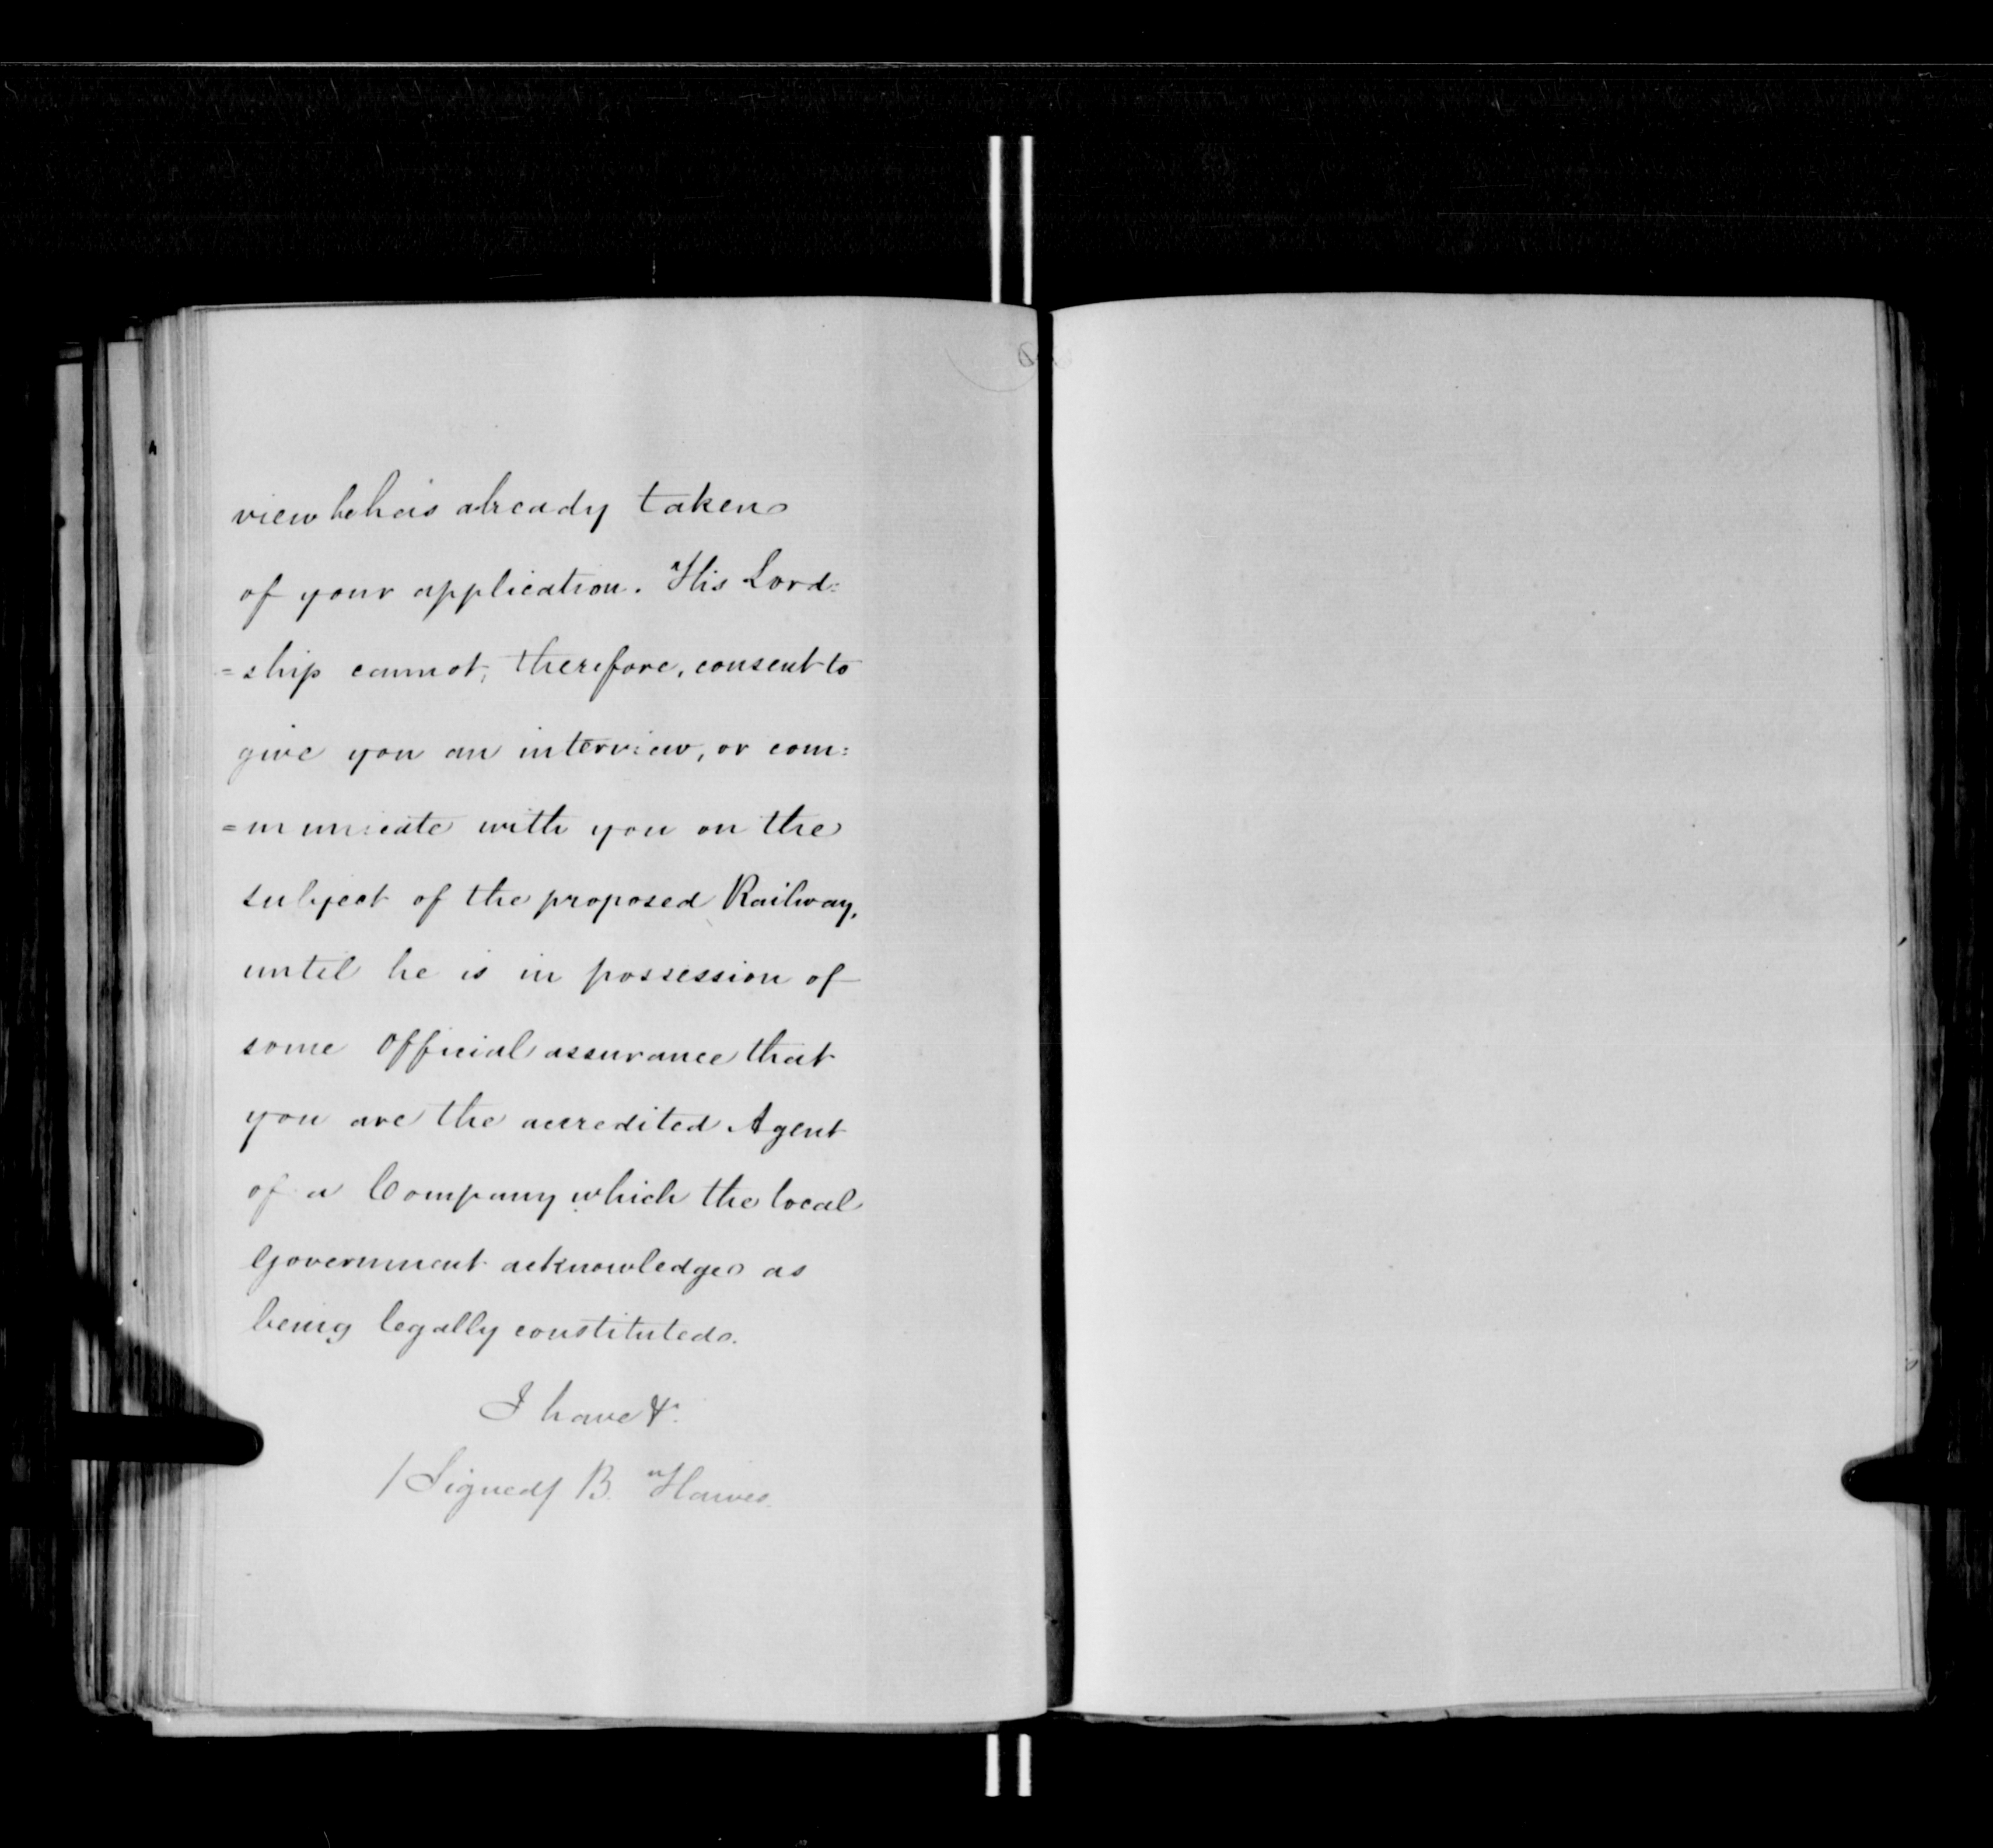 view he has already taken
of your application. His Lord:
=ship cannot, therefore, consent to
give you an interview, or com:
=municate with you on the
subject of the proposed Railway,
until he is in possession of
some Official assurance that
you are the accredited Agent
of a Company which the local
Government acknowledges as
being legally constituted.
I have &c.
/Signed/ B. Hawes.